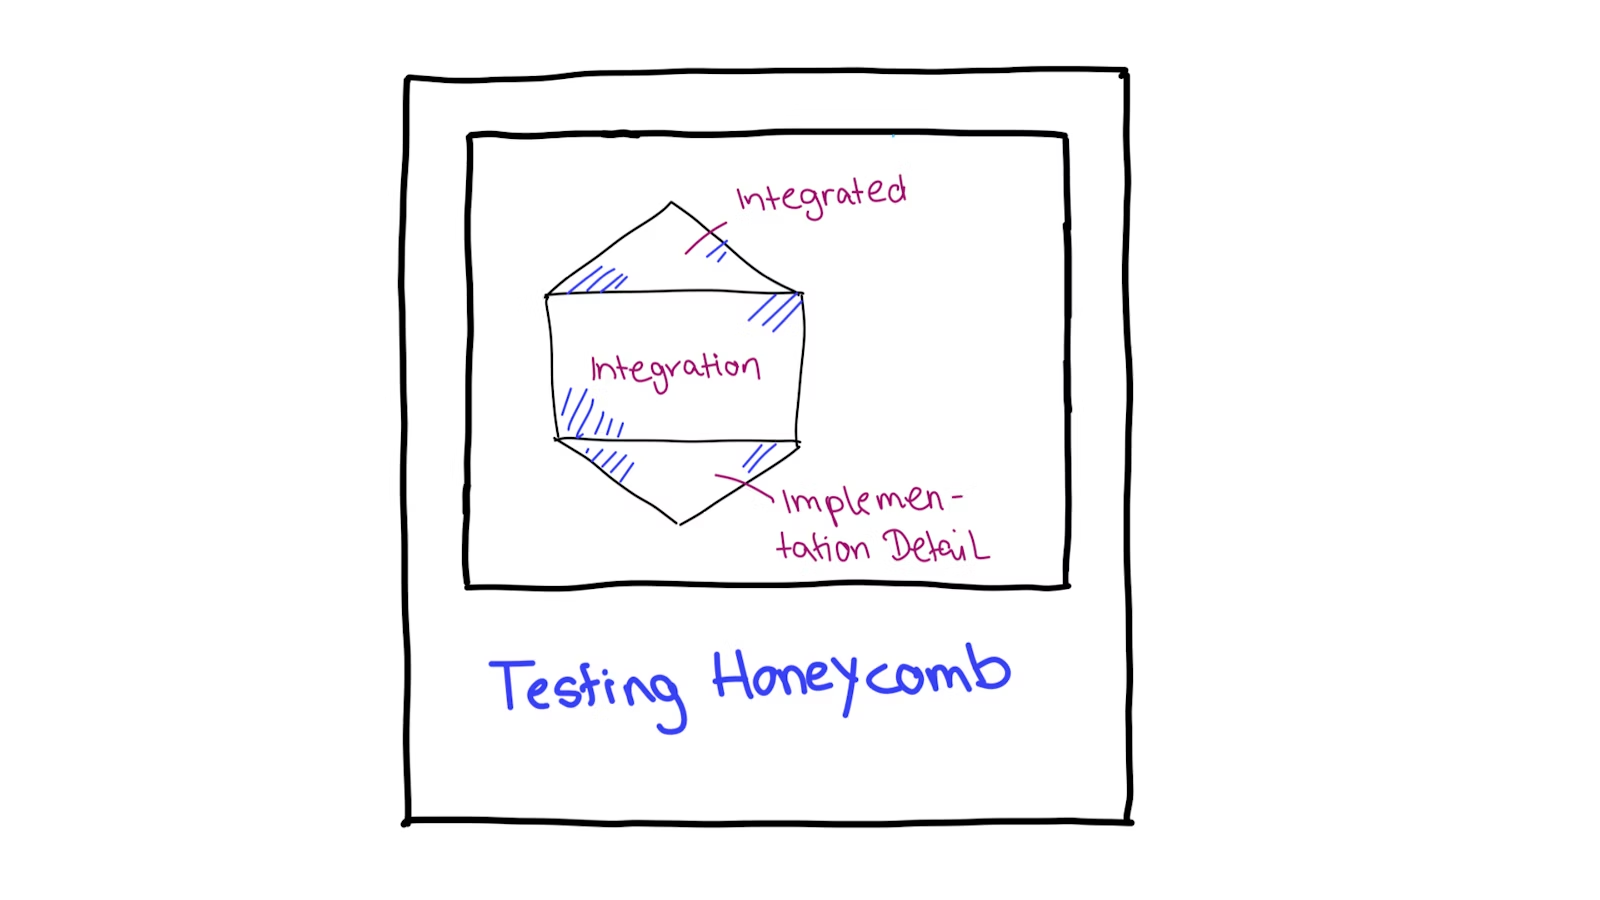 Integrated
Integration
Implemen-
tation Detail
Testing Honeycomb